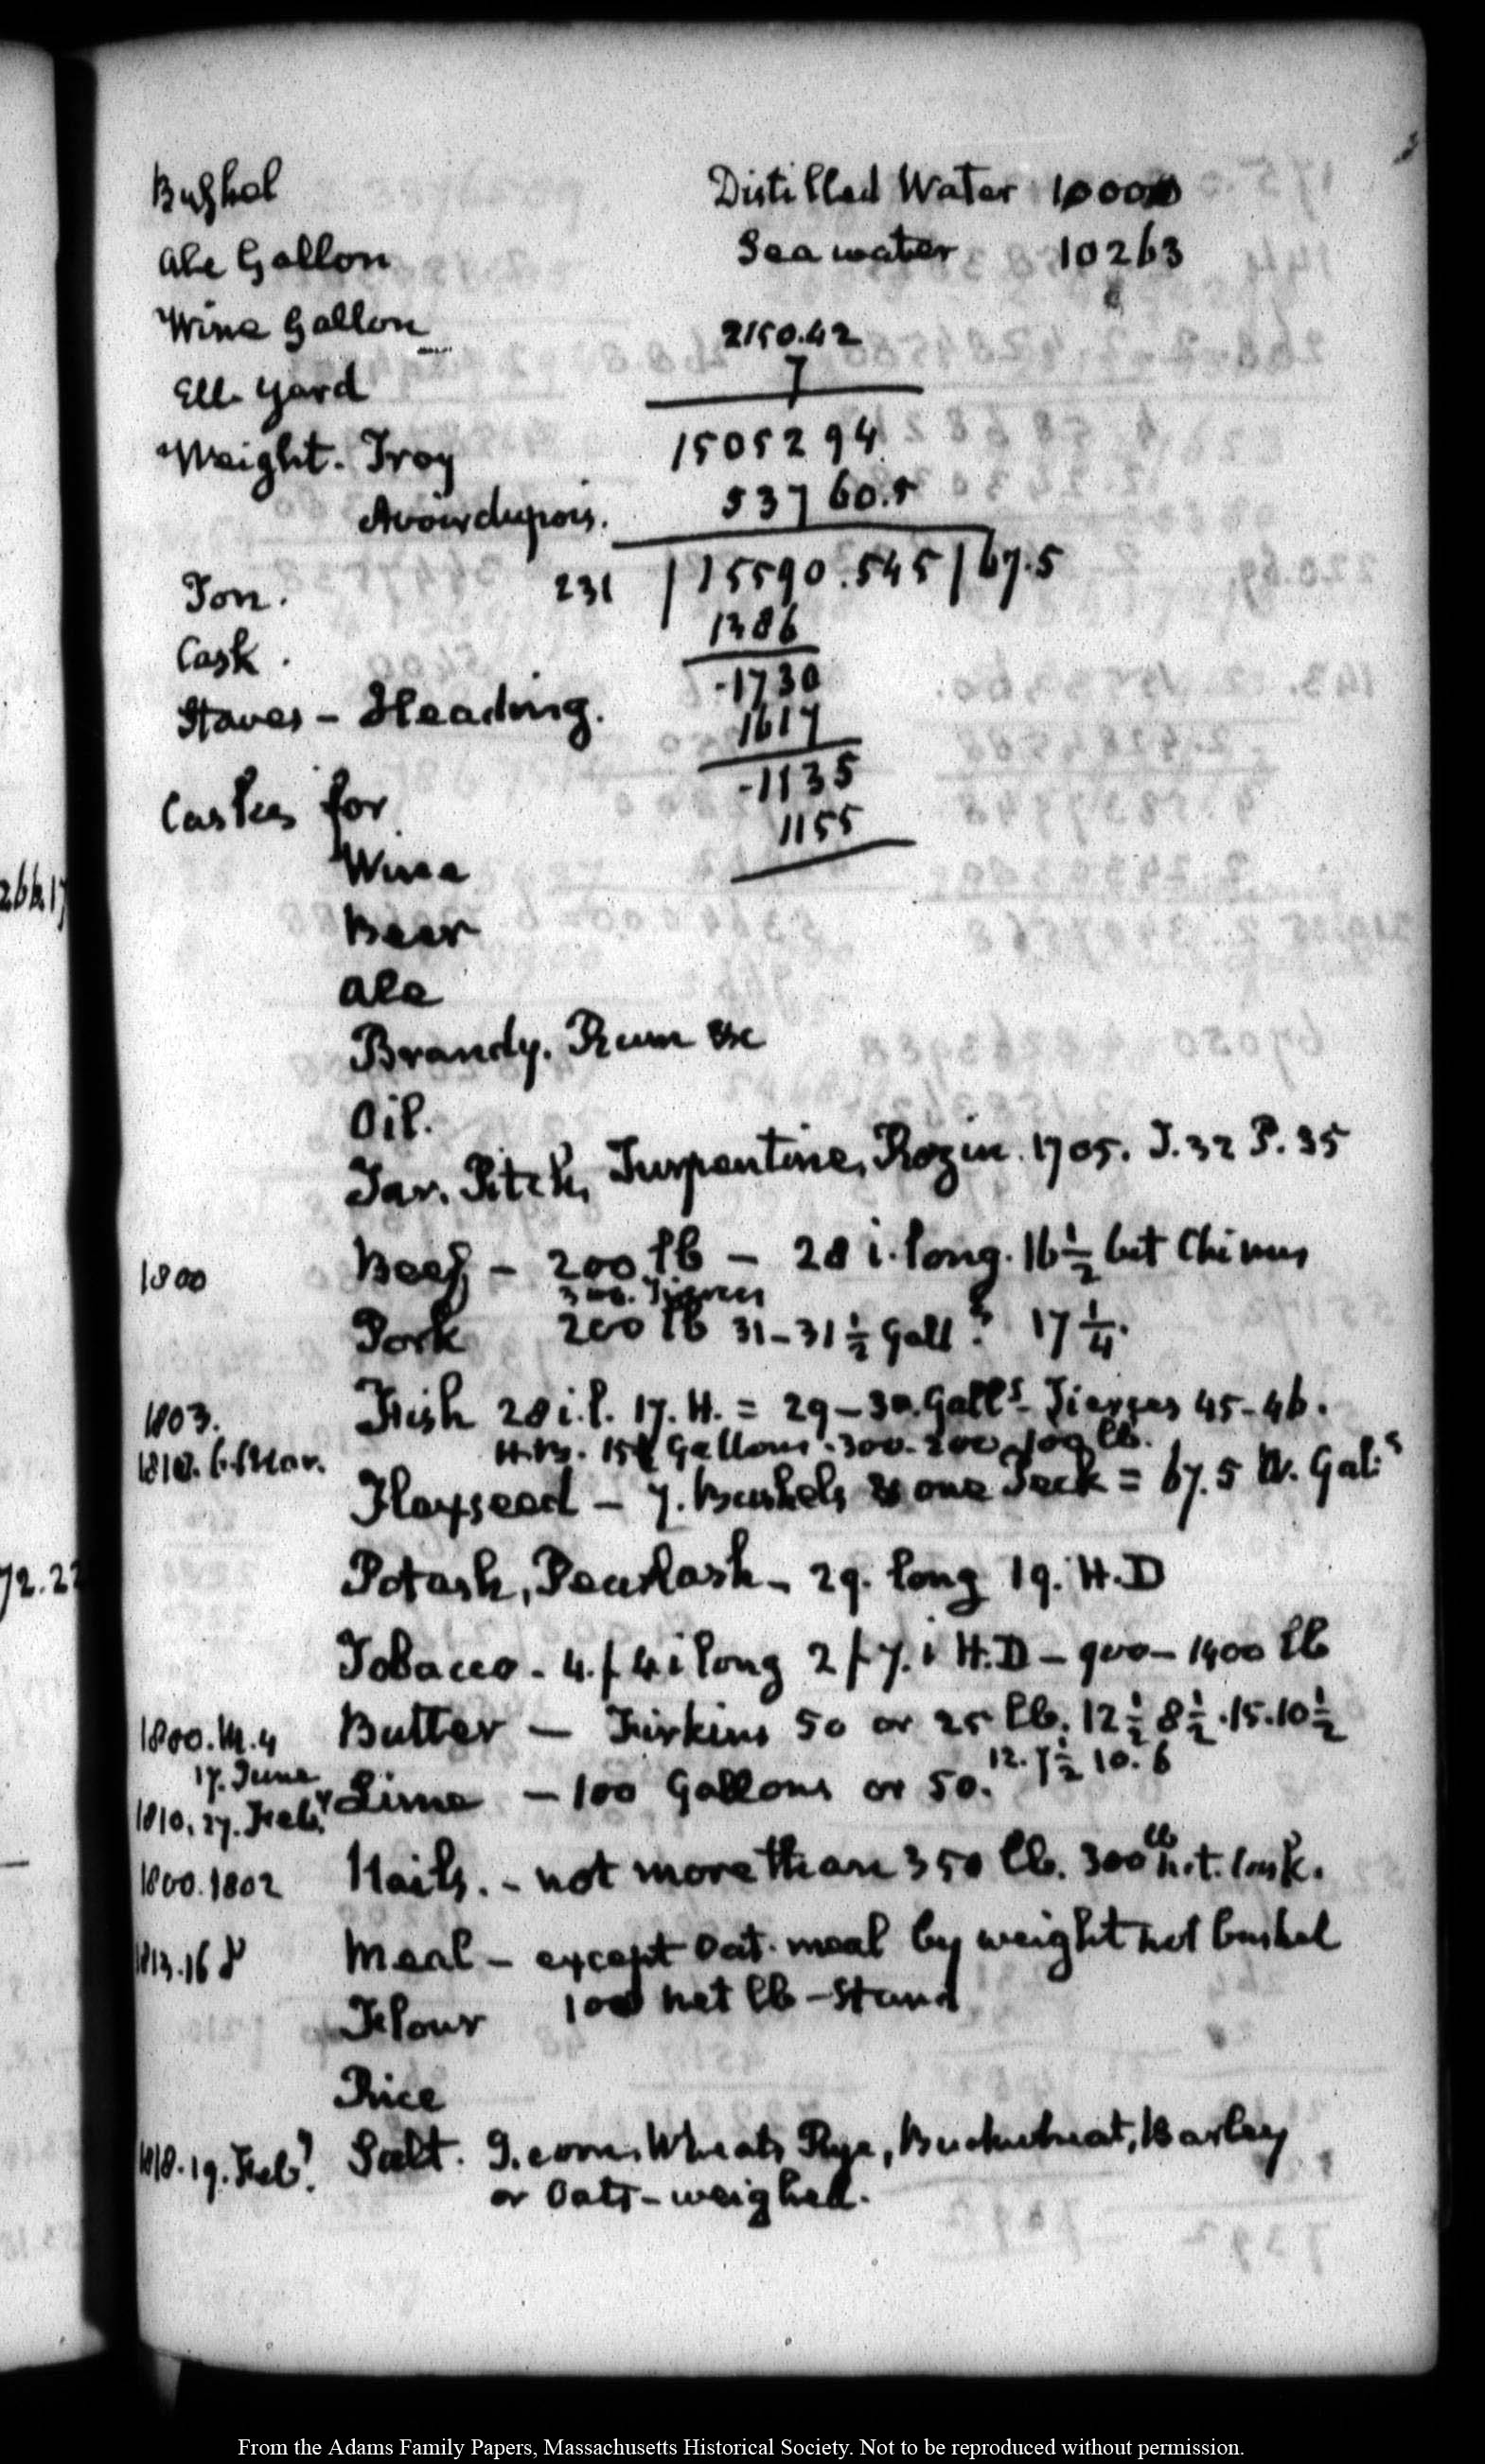 Bushel
Distilled Water 10000
Ale Gallon
Sea water 10263
Wine Gallon
2150.42
7
Ell. Yard
Weight. Troy
1505294
Avoirdupois.
53760.5
Ton.
231 | 15590.545 | 67.5
1386
Cask.
-1730
Staves - Heading.
1617
-1135
Casks for
1155
Wine
266.17
Beer
Ale
Brandy. Rum &c
Oil.
Tar. Pitch, Turpentine, Rozin. 1705. T. 32 P. 35
1800 Beef - 200 lb - 28 i. long. 16 1/2 bet Chimes
300. Tierces
Pork 200 lb 31-31 1/2 Gall? 17 1/4.
1803. Fish 28 i. l. 17. H. = 29-30. Galls - Tierces 45-46.
H.B. 15 Gallons. 300. 200. 100 lb.
Flaxseed - 7. Bushels & one Peck = 67.5 W. Gals
72.22
Potash, Pearlash - 29. long 19. H.D
Tobacco - 4. f 4 i long 2 f 7. i H.D - 900 - 1400 lb
1800. M. 4 Butter - Firkins 50 or 25 lb. 12 1/2 8 1/2. 15. 10 1/2
12. 7 1/2 10. 6
17. June
1810. 27. Feby Lime - 100 Gallons or 50.
1800. 1802 Nails. - not more than 350 lb. 300 lb n.t. Cask.
1813. 16 Meal - except Oat. meal by weight not bushel
Flour 100 net lb - Stand
Rice
1818. 19. Feby. Salt. I. corn. Wheat, Rye, Buckwheat, Barley
or Oats - weighed.
From the Adams Family Papers, Massachusetts Historical Society. Not to be reproduced without permission.